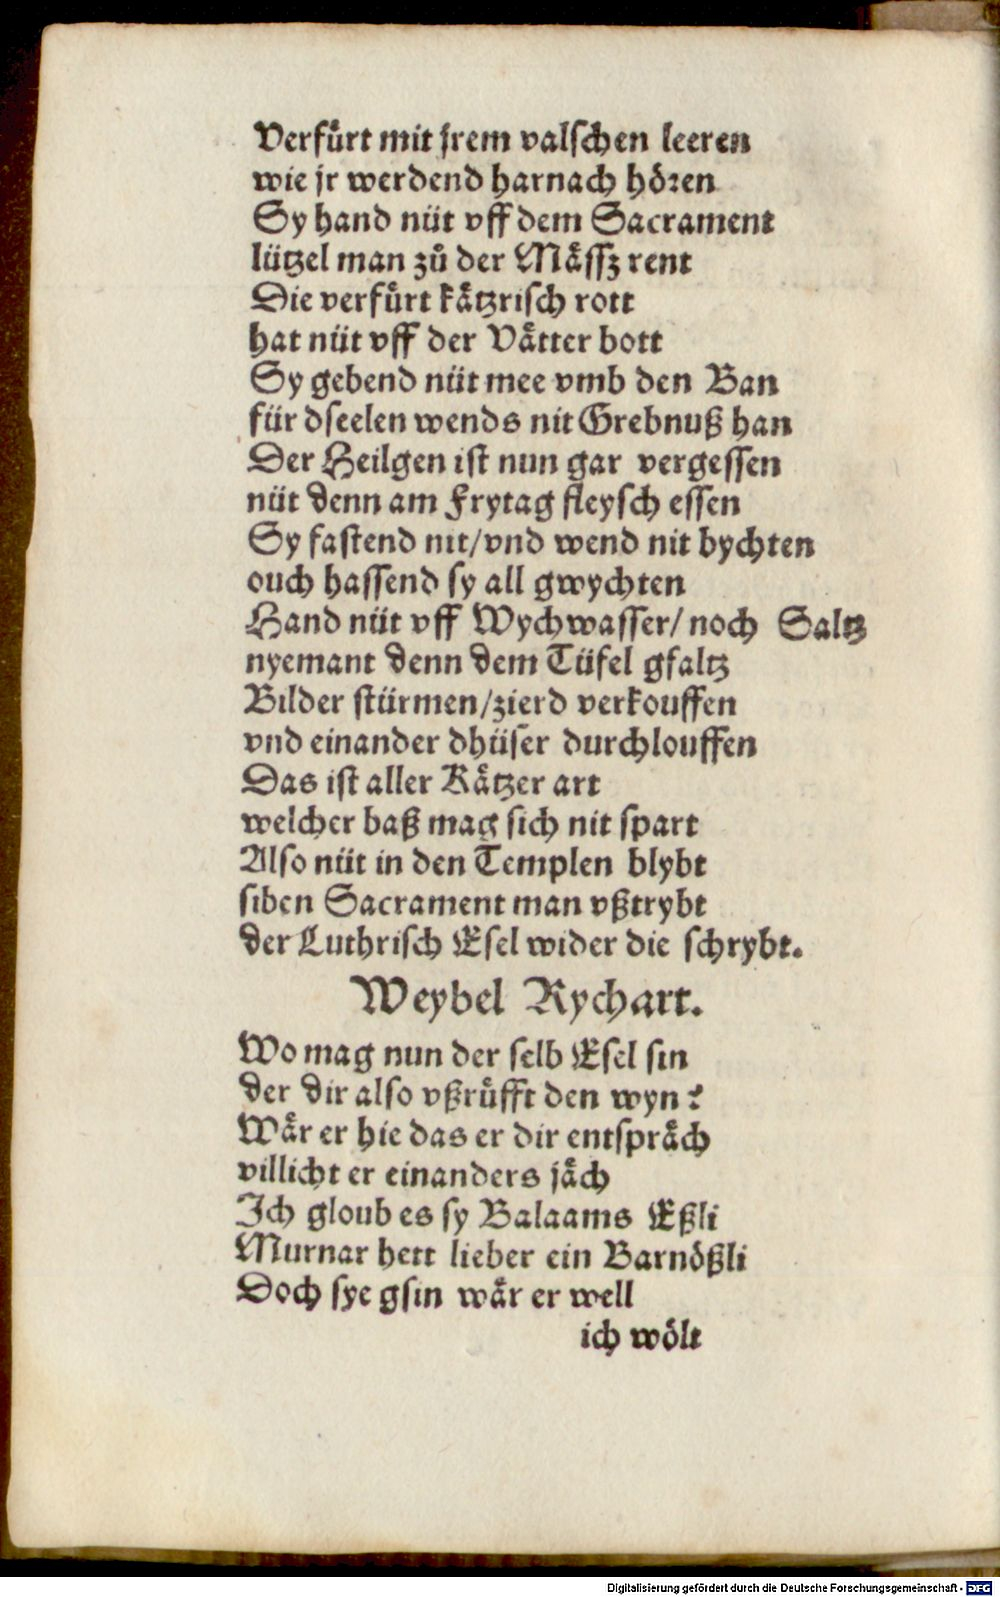 Verfuͤrt mit jrem valschen leeren
wie jr werdend harnach hoͤꝛen
Sy hand nüt vff dem Sacrament
lützel man zuͦ der Maͤssz rent
Die verfuͤrt kaͤtzrisch rott
hat nüt vff der Vaͤtter bott
Sy gebend nüt mee vmb den Ban
für dseelen wends nit Grebnuß han
Der Heilgen ist nun gar vergessen
nüt denn am Frytag fleysch essen
Sy fastend nit/vnd wend nit bychten
ouch hassend sy all gwychten
Hand nüt vff Wychwasser/ noch Saltz
nyemant denn dem Tüfel gfaltz
Bilder stürmen/zierd verkouffen
vnd einander dhüser durchlouffen
Das ist aller Kaͤtzer art
welcher baß mag sich nit spart
Also nüt in den Templen blybt
siben Sacrament man vßtrybt
der Luthrisch Esel wider die schrybt.
Weybel Rychart.
Wo mag nun der selb Esel sin
der dir also vßruͤfft den wyn?
Waͤr er hie das er dir entspraͤch
villicht er einanders jaͤch
Ich gloub es sy Balaams Eßli
Murnar hett lieber ein Barnoͤßli
Doch sye gsin waͤr er well
ich woͤlt
Digitalisierung gefördert durch die Deutsche Forschungsgemeinschaft - DFG